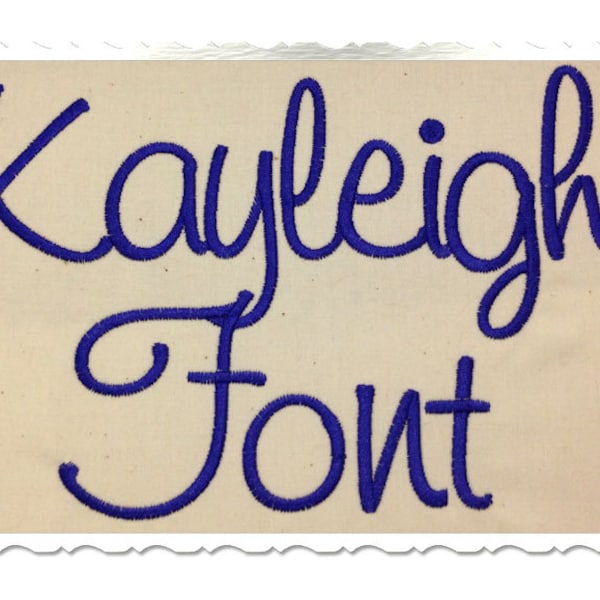 Kayleigh
Font